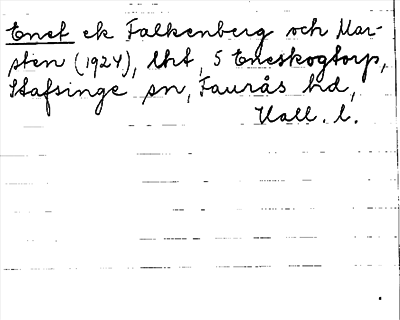 Enet ek Falkenberg och Mar-
sten (1924), lht, S Eneskogtorp,
Stafsinge sn, Faurås hd,
Hall. l.